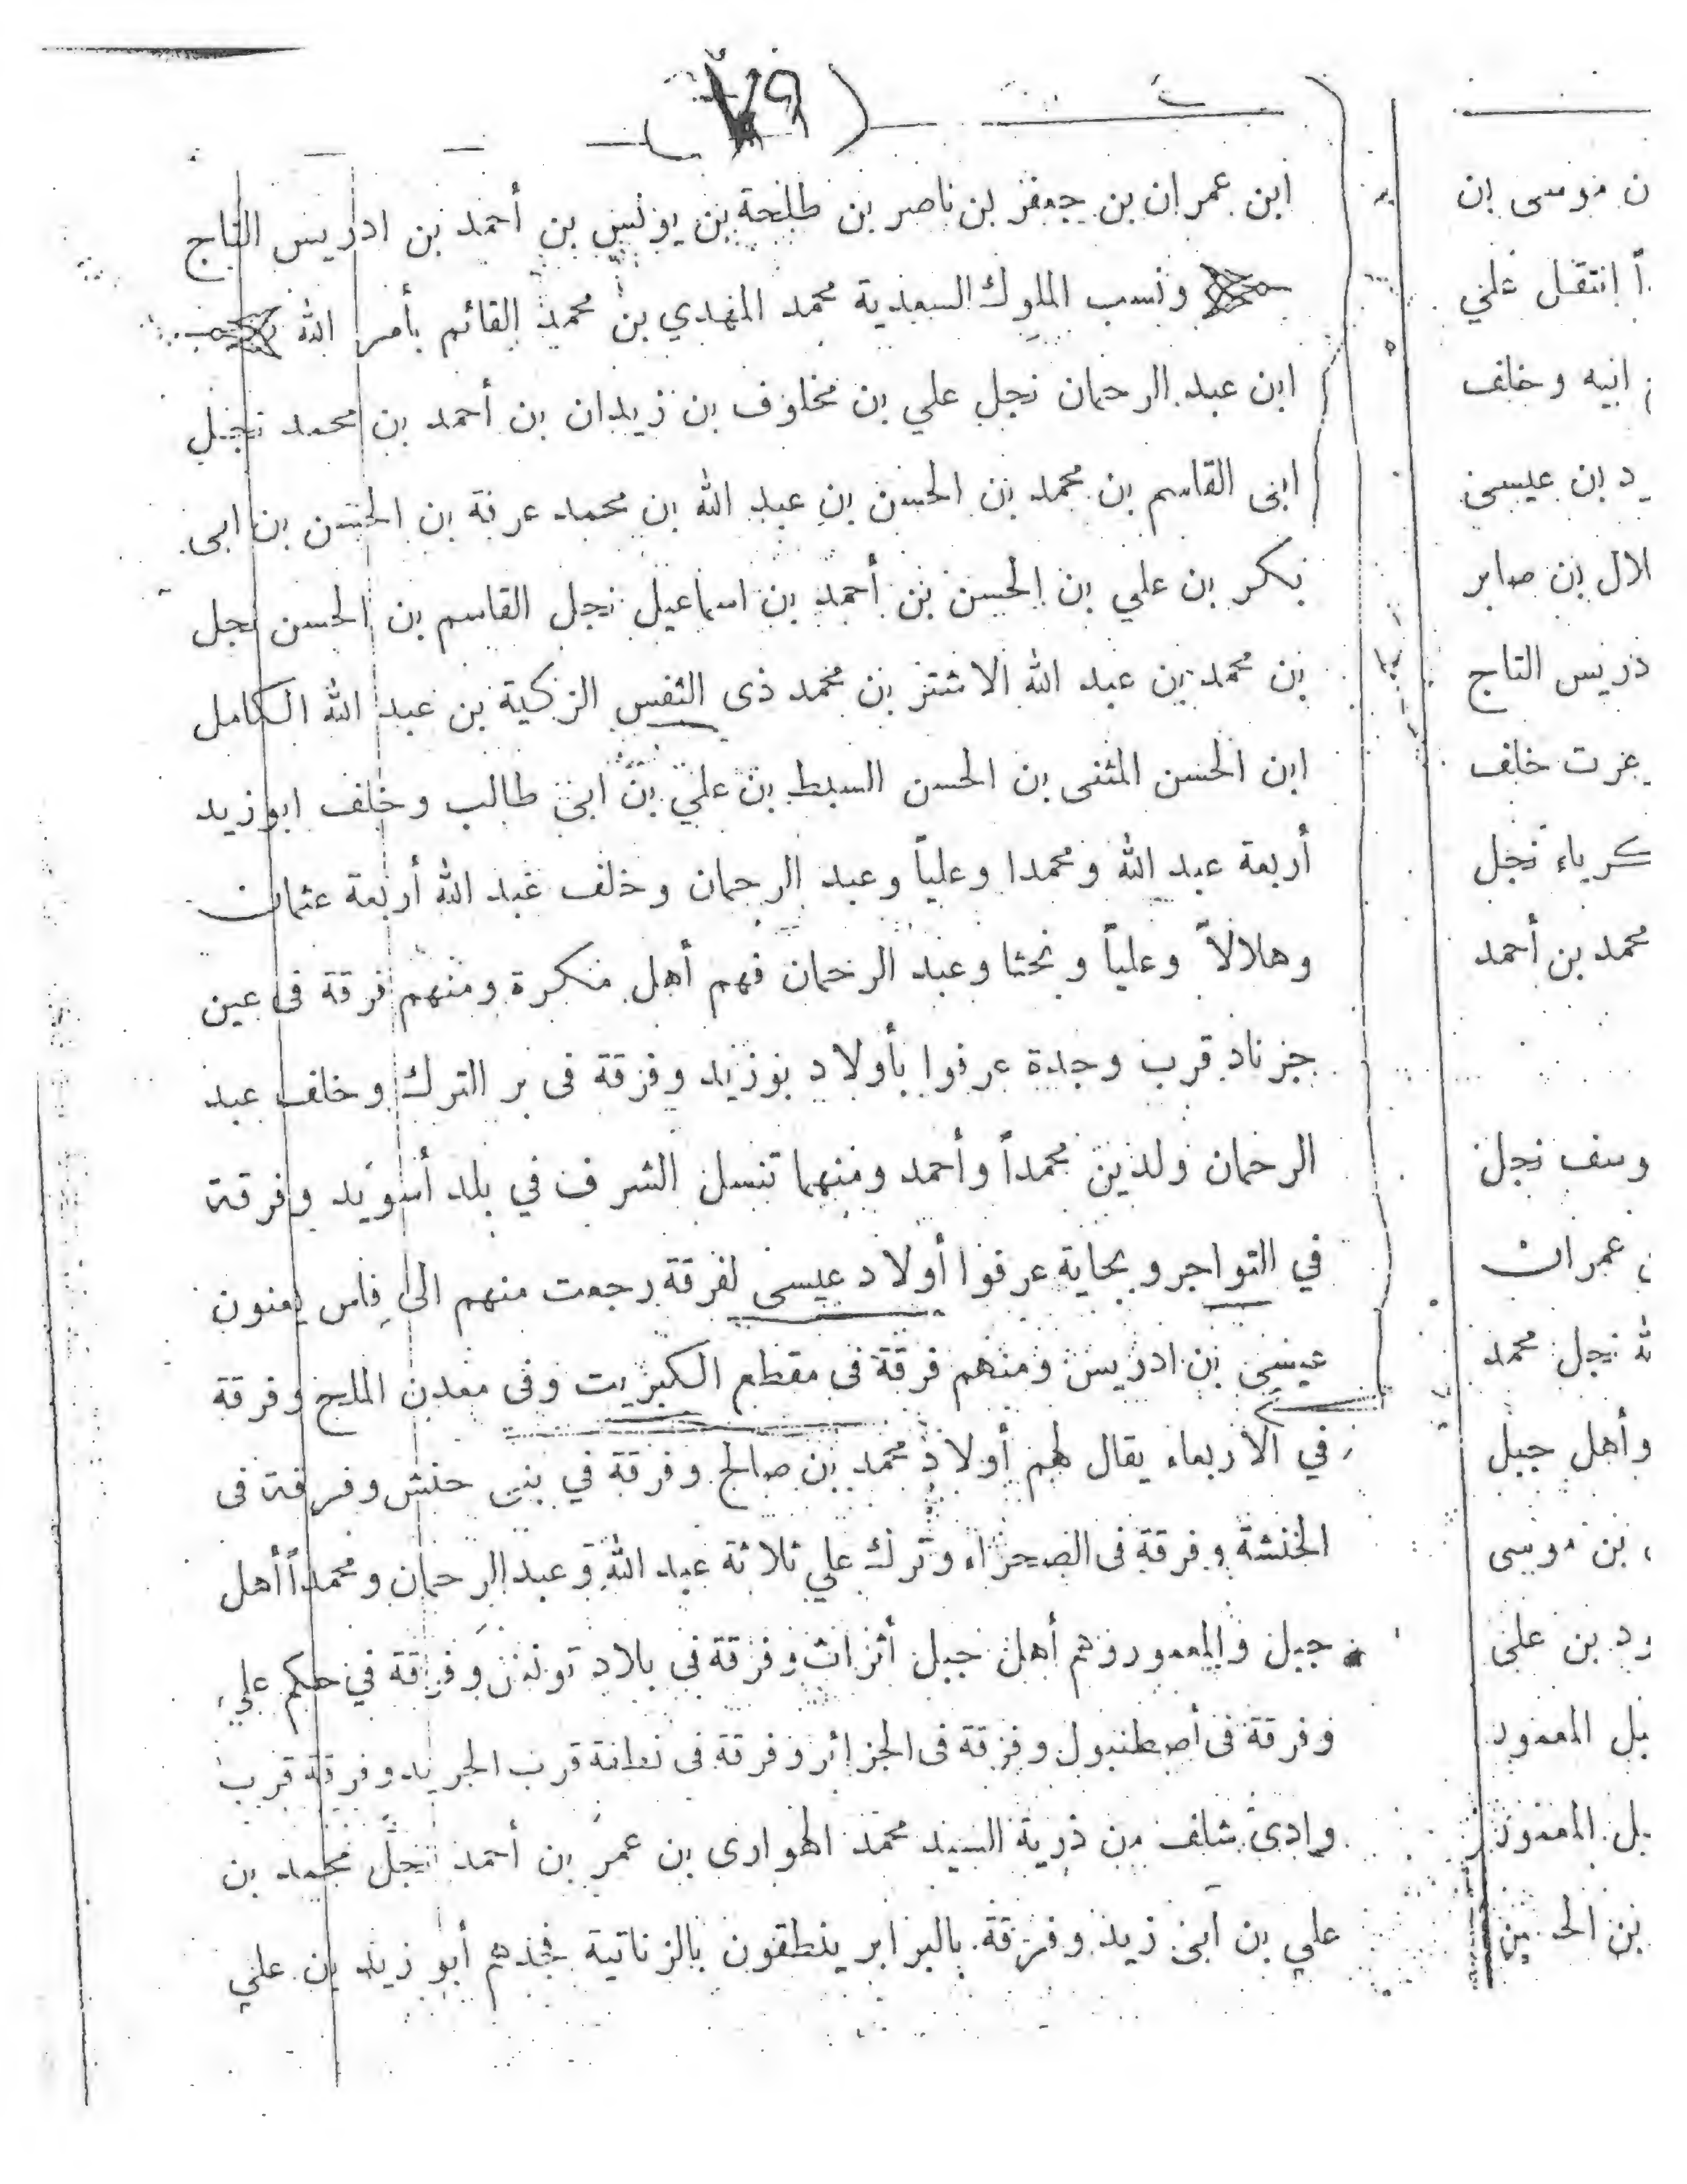 (٧٩)
ابن عمران بن جعفر بن ناصر بن طلحة بن يونس بن أحمد بن ادريس التاج
ونسب الملوك السعدية محمد المهدي بن محمد القائم بأمر الله
ابن عبد الرحمان نجل علي بن مخلوف بن زيدان بن أحمد بن محمد نجل
ابى القاسم بن محمد بن الحسن بن عبد الله بن محمد عرفة بن الحسن بن ابى
بكر بن علي بن الحسن بن أحمد بن اسماعيل نجل القاسم بن الحسن نجل
بن محمد بن عبد الله الاشتر بن محمد ذى النفس الزكية بن عبد الله الكامل
ابن الحسن المثنى بن الحسن السبط بن علي بن ابى طالب وخلف ابوزيد
أربعة عبد الله ومحمدا وعلياً وعبد الرحمان وخلف عبد الله أربعة عثمان
وهلالاً وعلياً و وعبد الرحمان فهم أهل منكرة ومنهم فرقة فى عين
جرناد قرب وجدة عرفوا بأولاد بوزيد وفرقة فى بر الترك وخلف عبد
الرحمان ولدين محمداً وأحمد ومنهما تنسل الشرف في بلد أسويد وفرقة
في التواجر وبجاية عرفوا أولاد عيسى لفرقة رجعت منهم الى فاس يعنون
عيسى بن ادريس ومنهم فرقة فى مقطع الكبريت وفى معدن الملح وفرقة
في الاربعاء يقال لهم أولاد محمد بن صالح وفرقة في بنى حنش وفرقة فى
الخنشة وفرقة فى الصحراء وترك علي ثلاثة عبد الله وعبد الرحمان ومحمداً أهل
جبل والمعمور وهم أهل جبل أثرات وفرقة فى بلاد تونس وفرقة في حكم علي
وفرقة فى أصطنبول وفرقة فى الجزائر وفرقة فى قرب الجريد وفرقة قرب
وادى شلف من ذرية السيد محمد الهوارى بن عمر بن أحمد نجل محمد بن
علي بن أبى زيد وفرقة بالبرابر ينطقون بالزناتية فجدهم أبو زيد بن علي
ن موسى بن
اً إنتقل علي
ابيه وخلف
د بن عيسى
لال بن صابر
دريس التاج
عزت خلف
كرياء نجل
محمد بن أحمد
وسف نجل
عمران
نجل محمد
وأهل جبل
بن موسى
ود بن على
بل المعمور
بل المعمور
بن الحسين